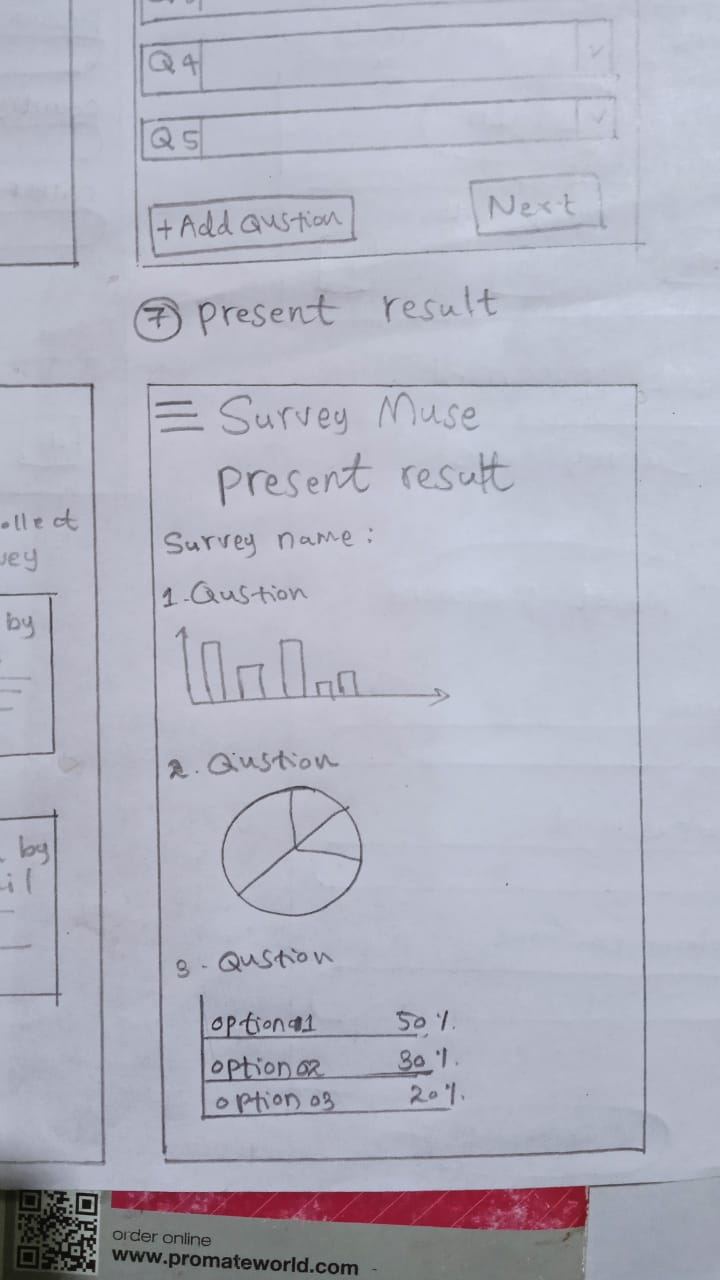 Q4
Q5
+ Add Qustion
Next
7 present result
≡ Survey Muse
present result
Survey name :
1. Qustion
2. Qustion
3. Qustion
option 01 50 %.
option 02 30 %.
option 03 20 %.
by
by
order online
www.promateworld.com